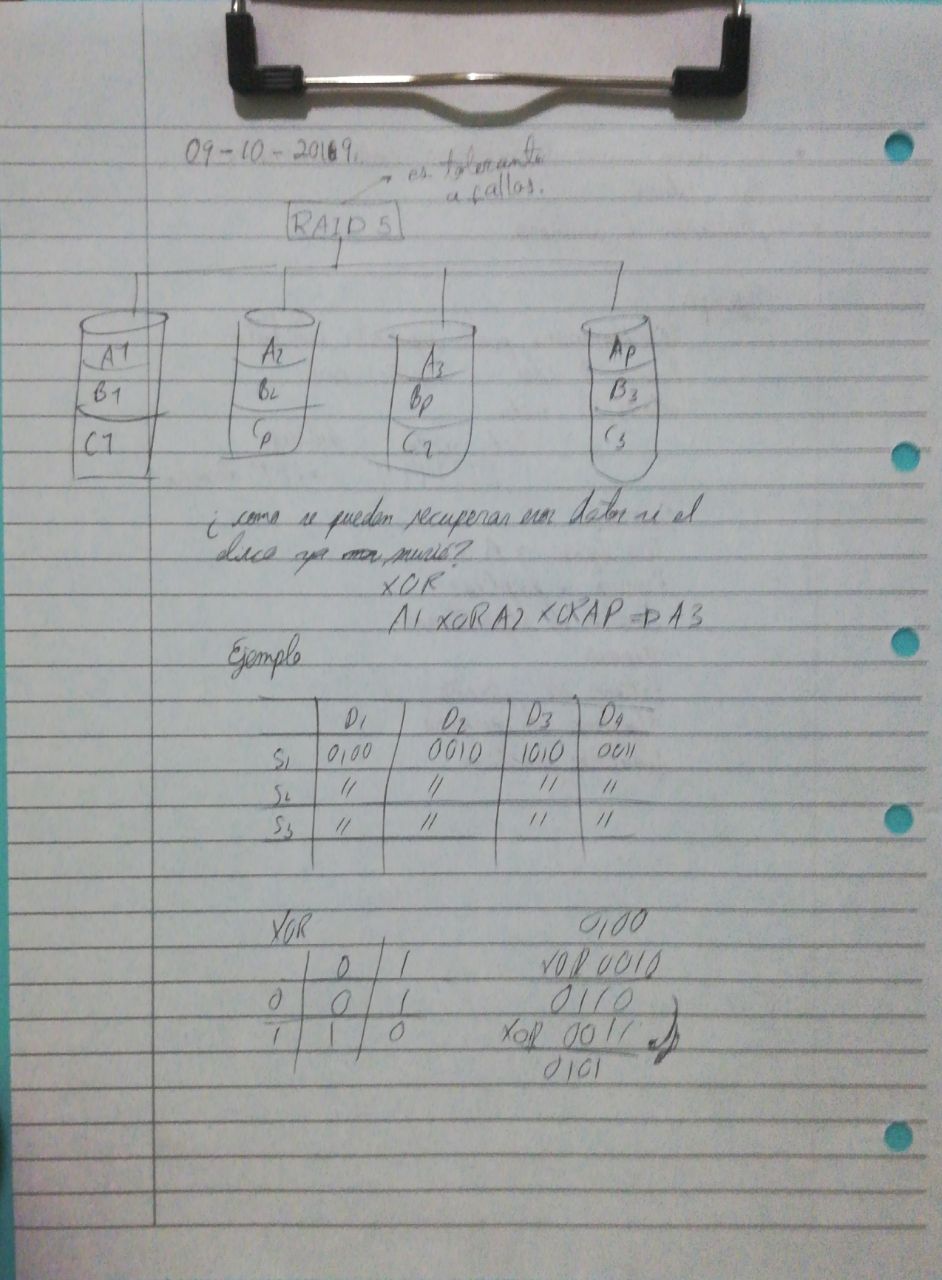 09-10-2019.
es tolerante
a fallas.
RAID 5
A1 A2 A3 Ap
B1 B2 Bp B3
C1 Cp C2 C3
¿como se pueden recuperar esos datos si el
disco ya murió?
XOR
A1 XOR A2 XOR AP => A3
Ejemplo
D1 D2 D3 D4
S1 0100 0010 1010 0011
S2 " " " "
S3 " " " "
XOR
0 1
0 0 1
1 1 0
0100
XOR 0010
0110
XOR 0011
0101